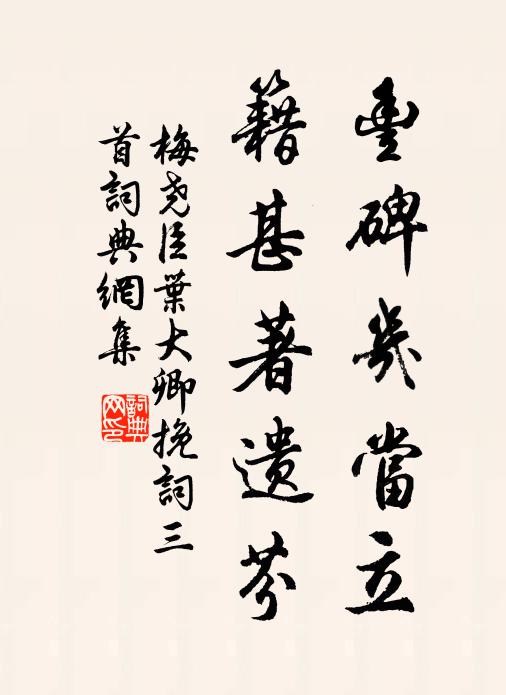 豊碑幾當立
籍甚著遺芬
梅堯臣葉大卿挽詞三
首詞典網集
詞典
网印